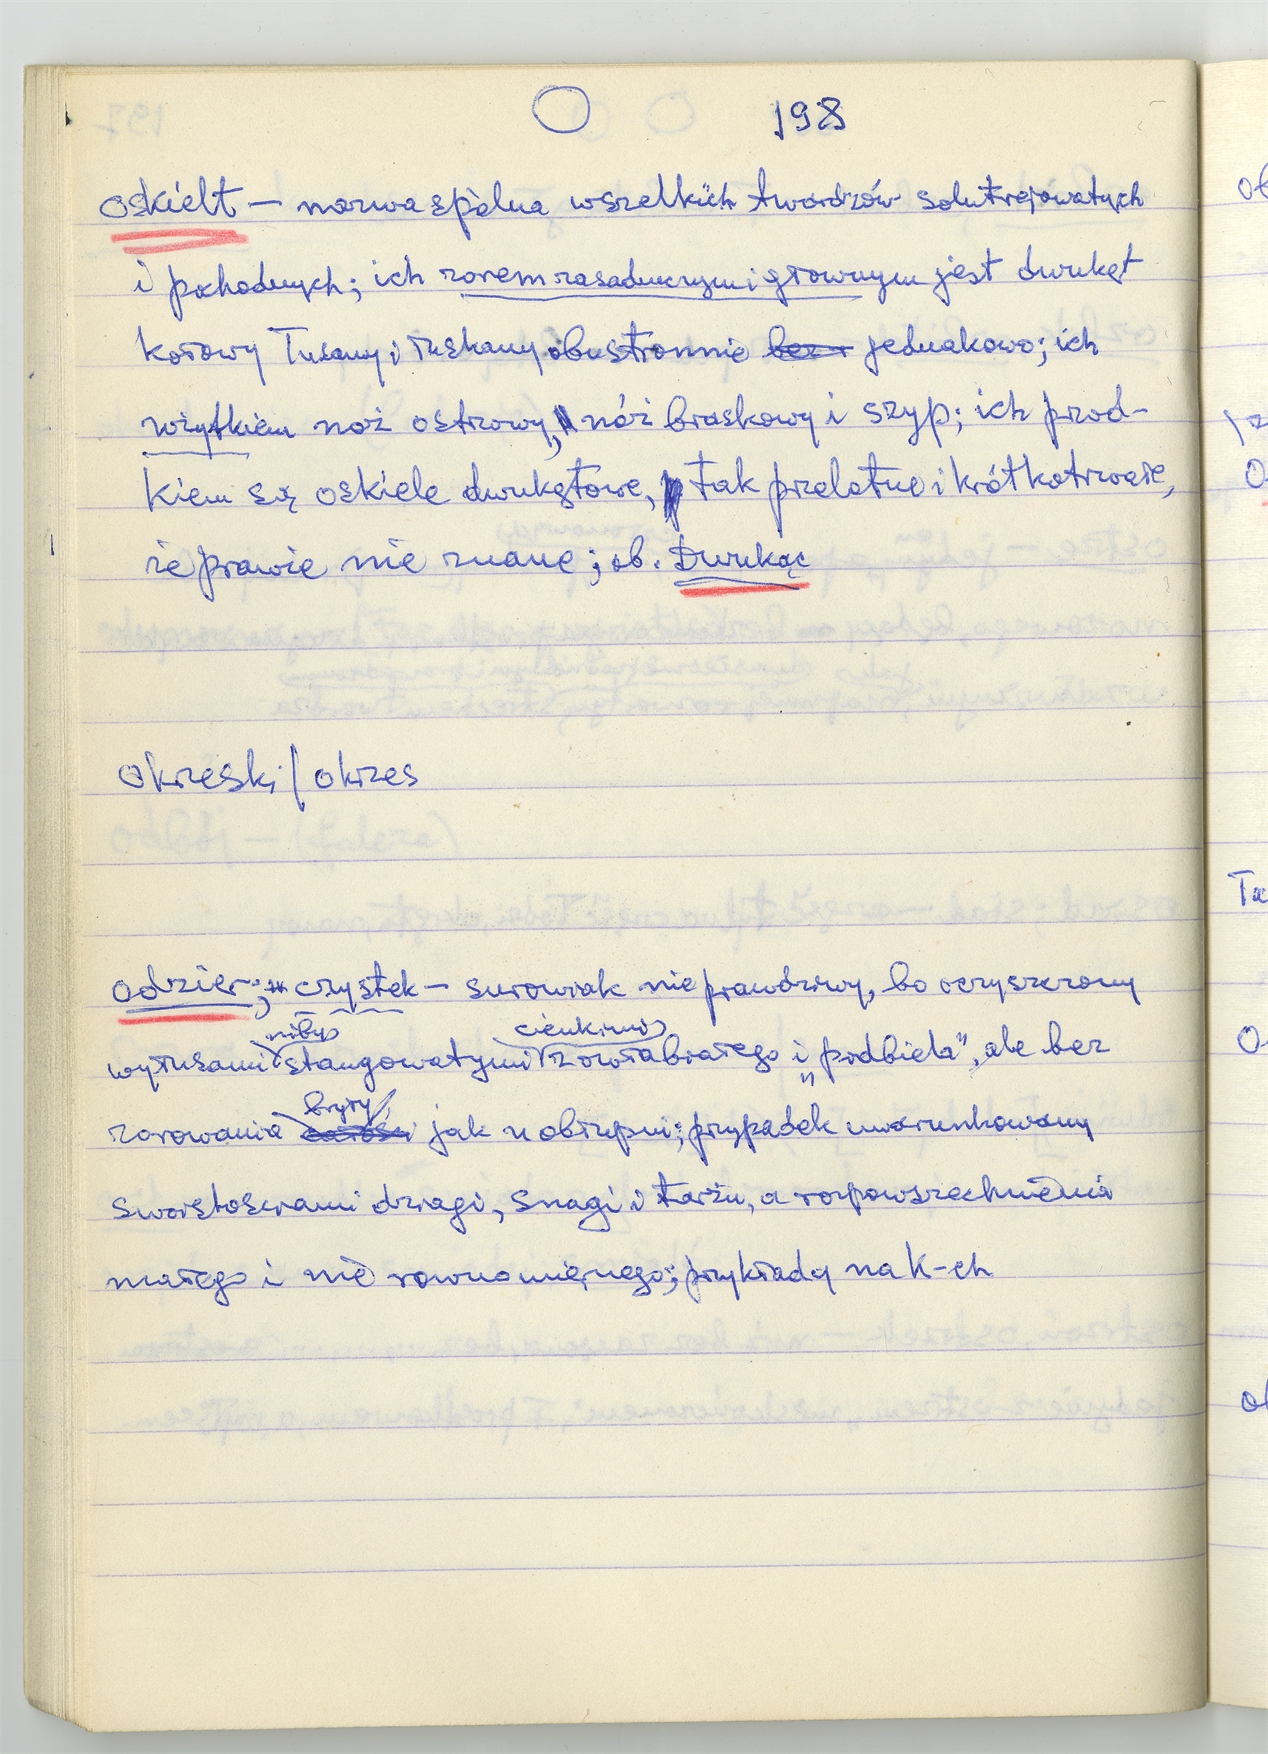 O 198
oskielt – nazwa spólna wszelkich twardzów solutrejowatych
i pochodnych; ich zorem zasadniczym i głównym jest dwukąt
kołowy łusany i łuskany obustronnie bez jednakowo; ich
użytkiem noż ostrzowy, nóż braskowy i szyp; ich przod-
kiem są oskiele dwukątowe, tak przelotne i krótkotrwałe,
że prawie nie znane; ob. Dwukąc
okrzeski / okrzes
odzier; czystek – surowiak nieprawdziwy, bo oczyszczony
niby cienkimi
wyłusami stangowatymi z owłabiałego i „podbiela", ale bez
bryły
zorowania całości jak u obłupni; przypadek uwarunkowany
swoistościami dziagi, snagi i tarżu, a rozpowszechnienia
małego i nie równomiernego; przykłady na K-ch
ob
O
Tu
O
ob